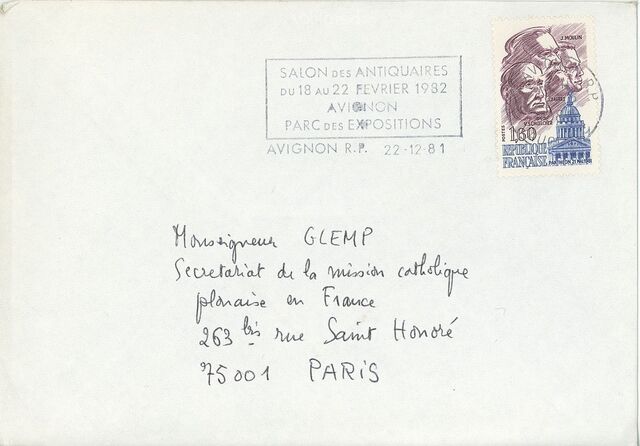 SALON DES ANTIQUAIRES
DU 18 AU 22 FEVRIER 1982
AVIGNON
PARC DES EXPOSITIONS
AVIGNON R.P. 22-12-81
J. MOULIN
J. JAURES
V. SCHŒLCHER
POSTES 1,60
REPUBLIQUE
FRANÇAISE
PANTHEON 21 MAI 1981
R.P.
Monseigneur GLEMP
Secretariat de la mission catholique
plonaise en France
263 bis rue Saint Honoré
75001 PARIS